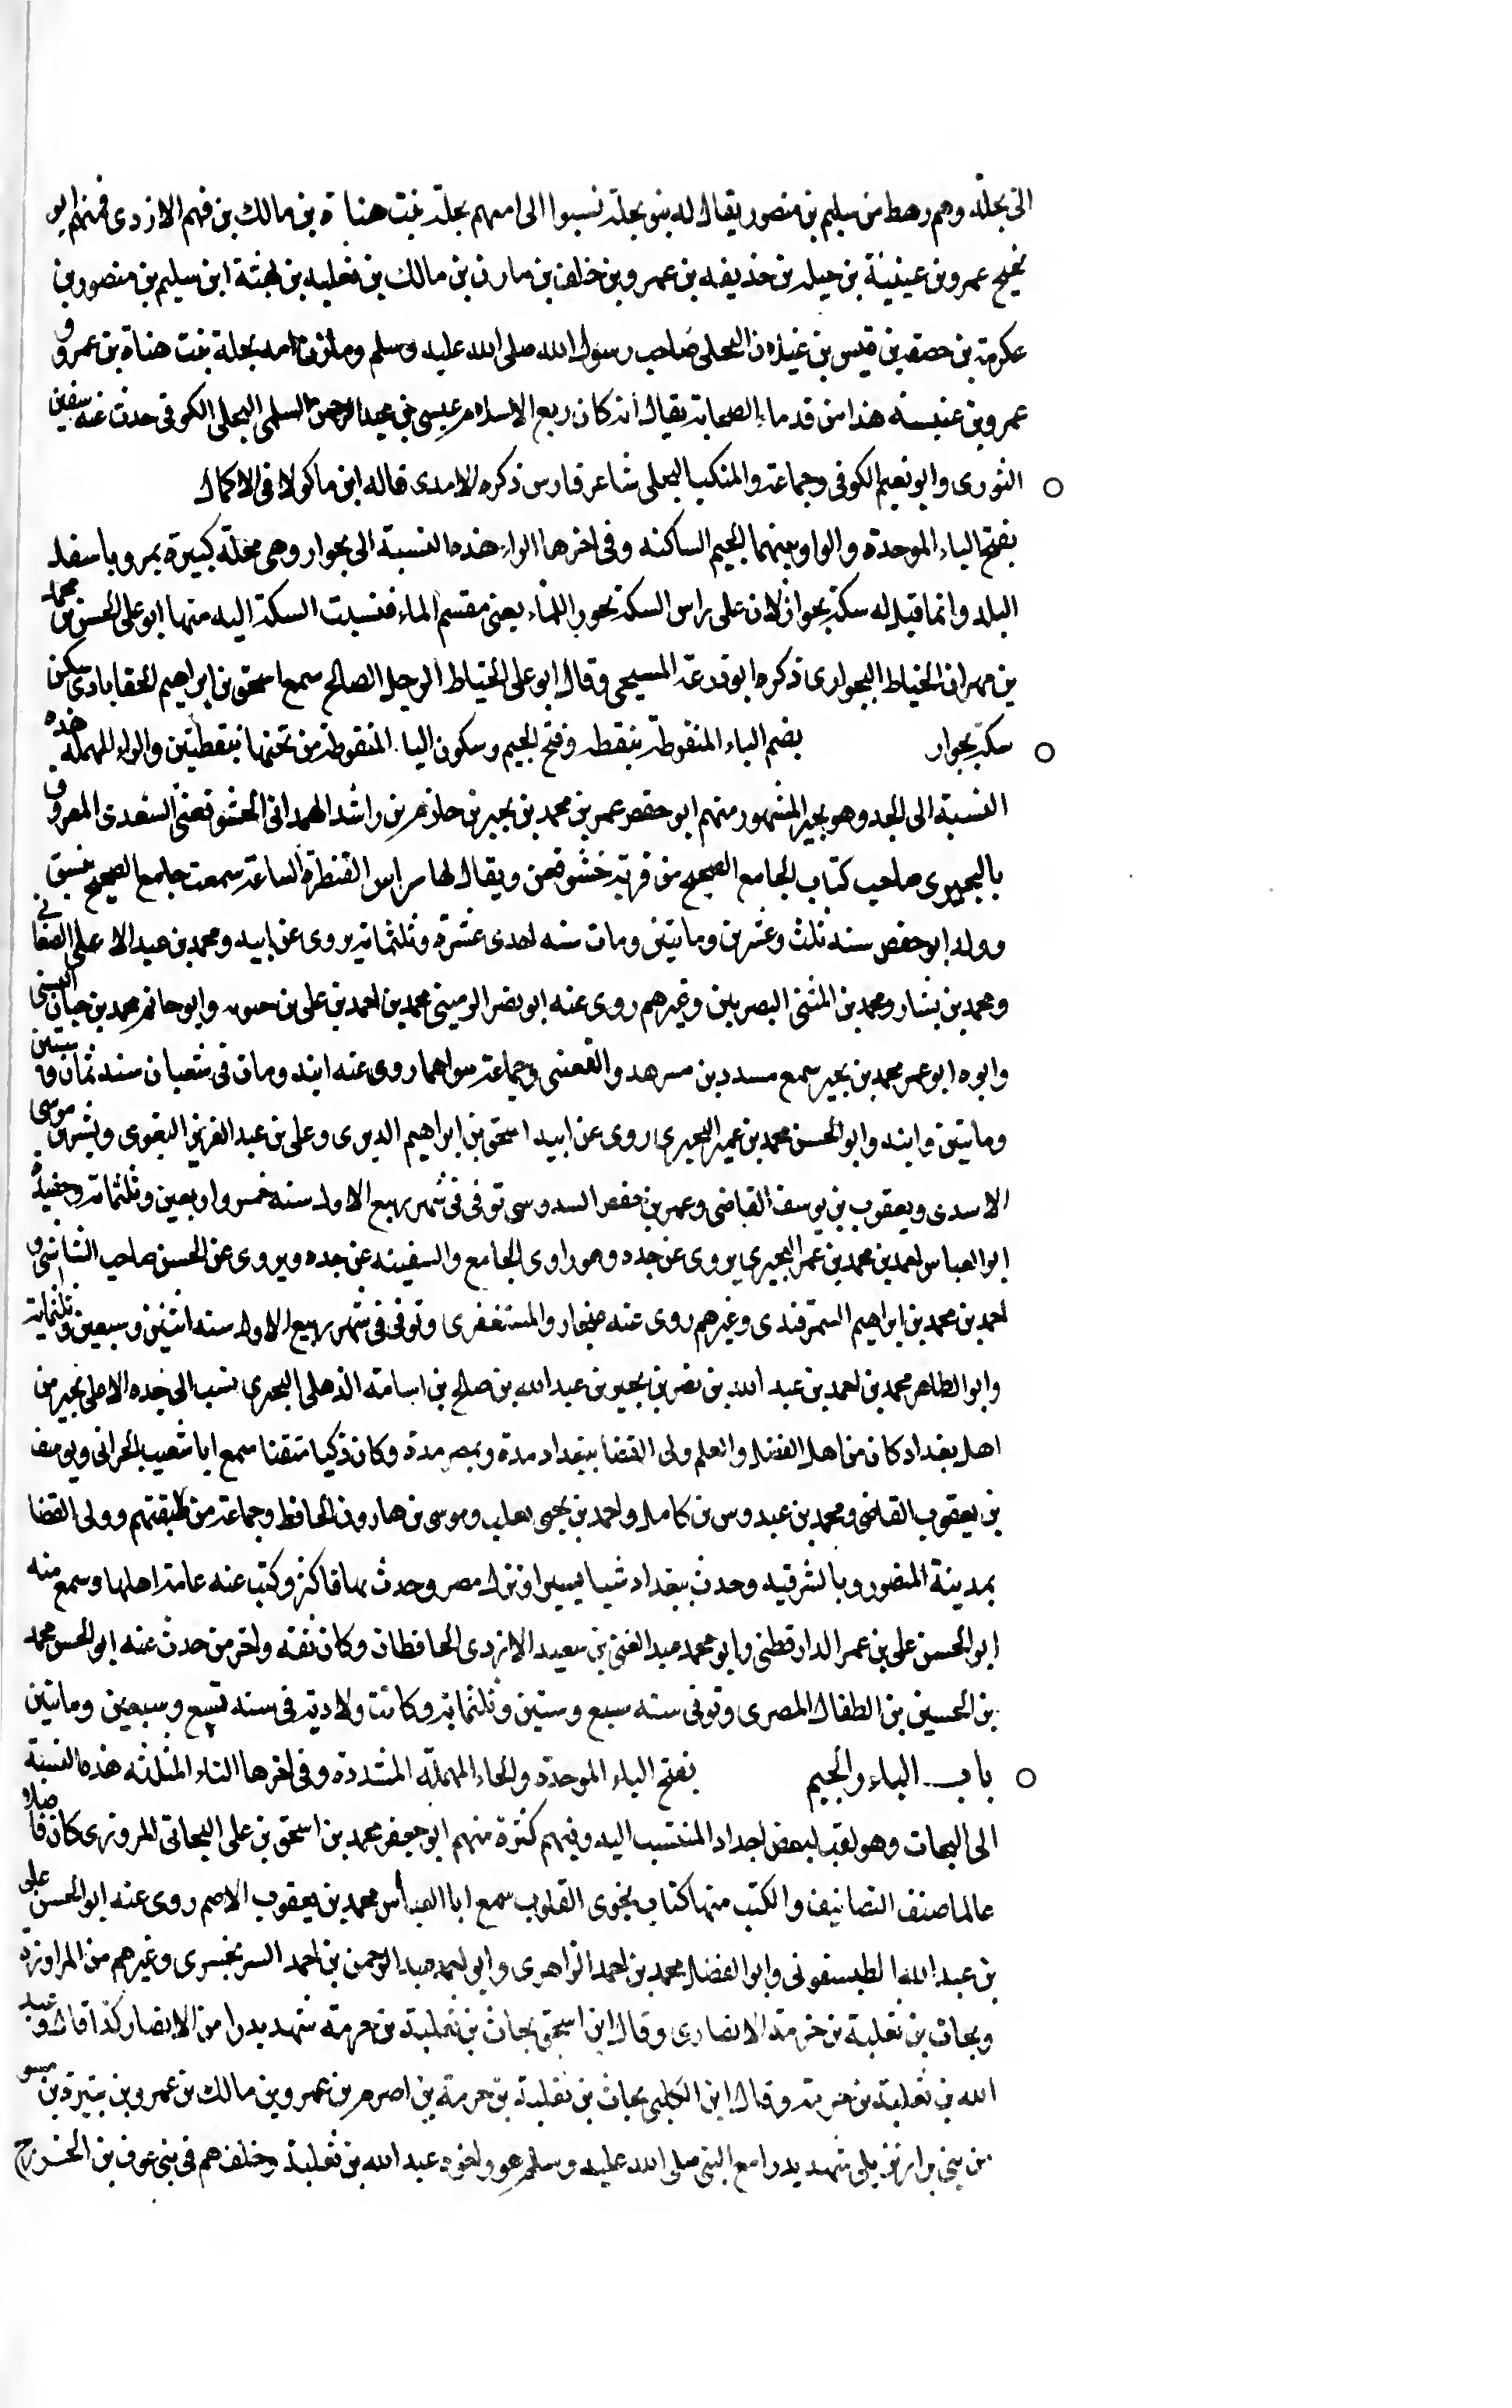 الى بجلة وهم رهط من سليم بن منصور يقال له بنو بجلة نسبوا الى امهم بجلة بنت هناة بن مالك بن فهم الازدى فمنهم ابو
نجيح عمرو بن عبينة بن حذيفه بن عمرو بن خلف بن مازن بن مالك بن ثعلبه بن بهثة ابن سليم بن منصور بن
عكرمة بن خصفه بن قيس بن غيلان البجلى صاحب رسول الله صلى الله عليه وسلم ومازن امه بجلة بنت هناه بن عمرو و
عمرو بن عنبسه هذا من قدماء الصحابة يقال انه كان ربع الاسلام عيسى بن عبد الرحمن السلمى البجلى الكوفى حدث عنه سفين
الثورى وابو نعيم الكوفى وجماعة والمنكب البجلى شاعر فارس ذكره الامدى قاله ابن ماكولا فى الاكمال
بفتح الباء الموحدة والواو بينهما الجيم الساكنه وفى اخرها الراء هذه النسبة الى بجوار وهى محلة كبيرة بمرو باسفل
البلد وانما قيل له سكة بجوار لان على راس السكة بجور الماء يعنى مقسم الماء فنسبت السكة اليه منها ابو على الحسن بن محمد
بن مهران الخياط البجوارى ذكره ابو زرعة المسيحى وقال ابو على الخياط الرجل الصالح سمع اسحق بن ابراهيم سكن
سكة بجوار بضم الباء المنقوطة بنقطه وفتح الجيم وسكون اليا المنقوطة من تحتها بنقطتين والراء المهملة هذه
النسبة الى الجد وهو بجير المشهور منهم ابو حفص عمر بن محمد بن بجير بن حازم بن راشد الهمدانى الخشوفغنى السغدى المعروف
بالبجيرى صاحب كتاب الجامع الصحيح من قرية خشوفغن ويقال لها راس القنطرة الساعة سمعت جامع الصحيح بنسق
وولد ابو حفص سنة ثلث وعشرين ومايتين ومات سنه احدى عشرة وثلثماية يروى عن ابيه ومحمد بن عبد الاعلى الصنعانى
ومحمد بن بشار ومحمد بن المثنى البصريين وغيرهم روى عنه ابو نصر محمد بن احمد بن على بن وابو حاتم محمد بن حبان البستى
وابوه ابو عمر محمد بن بجير سمع مسدد بن مسرهد والقعنبى وجماعة سواهما روى عنه ابنه ومات فى شعبان سنة ثمان وستين
ومايتين وابنه وابو الحسن محمد بن عمر البجيرى روى عن ابيه اسحق بن ابراهيم الدبرى وعلى بن عبد العزيز البغوى وبشر بن موسى
الاسدى ويعقوب بن يوسف القاضى وعمر بن حفص السدوسى توفى فى شهر ربيع الاول سنه خمس واربعين وثلثماية وحفيده
ابو العباس احمد بن محمد بن عمر البجيرى يروى عن جده وهو راوى الجامع والسفينه عن جده ويروى عن الحسن صاحب الشاشى و
احمد بن محمد بن ابراهيم السمرقندى وغيرهم روى عنه غنجار والمستغفرى وتوفى فى شهر ربيع الاول سنة اثنين وسبعين وثلثماية
وابو الطاهر محمد بن احمد بن عبد الله بن نصر بن بجير بن عبد الله بن صلح بن اسامة الذهلى البجيرى نسب الى جده الاعلى بجير من
اهل بغداد كان من اهل الفضل والعلم ولى القضا ببغداد مدة وبمصر مدة وكان ذكيا متقنا سمع ابا شعيب الحرانى ويوسف
بن يعقوب القاضى ومحمد بن عبدوس بن كامل واحمد بن يحيى ثعلب وموسى بن هارون الحافظ وجماعة من طبقتهم وولى القضا
بمدينة المنصور وبالشرقيه وحدث ببغداد شيا يسيرا ونزل مصر وحدث بها فاكثر وكتب عنه عامة اهلها وسمع منه
ابو الحسن على بن عمر الدارقطنى وابو محمد عبد الغنى بن سعيد الازدى الحافظان وكان ثقه واخر من حدث عنه ابو الحسن محمد
بن الحسين بن الطفال المصرى وتوفى سنه سبع وستين وثلثماية وكانت ولادته فى سنه تسع وسبعين ومايتين
باب الباء والجيم بفتح الباء الموحدة والحاء المهملة المشددة وفى اخرها الثاء المثلثه هذه النسبة
الى البحاث وهو لقب لبعض اجداد المنتسب اليه وفيهم كثرة منهم ابو جعفر محمد بن اسحق بن على البحاثى المروزى كان فاضلا
عالما صنف التصانيف والكتب منها كتاب نجوى القلوب سمع ابا العباس محمد بن يعقوب الاصم روى عنه ابو الحسن على
بن عبد الله الطيسفونى وابو الفضل محمد بن احمد الزاهرى وابو احمد عبد الرحمن بن احمد السرنجسرى وغيرهم من المراوزة
وبحاث بن ثعلبة بن خزمة الانصارى وقال ابن اسحق بحاث بن ثعلبة بن خزمة شهد بدرا من الانصار كذا قال وعبد
الله بن ثعلبة بن خزمة وقال ابن الكلبى بحاث بن ثعلبة بن خزمة بن اصرم بن عمرو بن مالك بن عمرو بن بتيرة بن
من بنى بلى شهد بدرا مع النبى صلى الله عليه وسلم هو واخوه عبد الله بن ثعلبة وحلفهم فى بنى عوف بن الخزرج